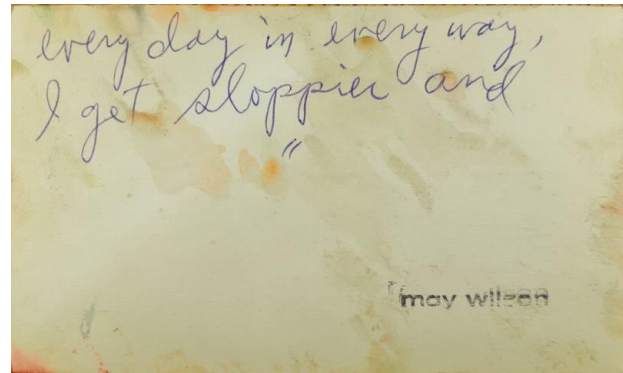 every day in every way,
I get sloppier and
"
may wilson